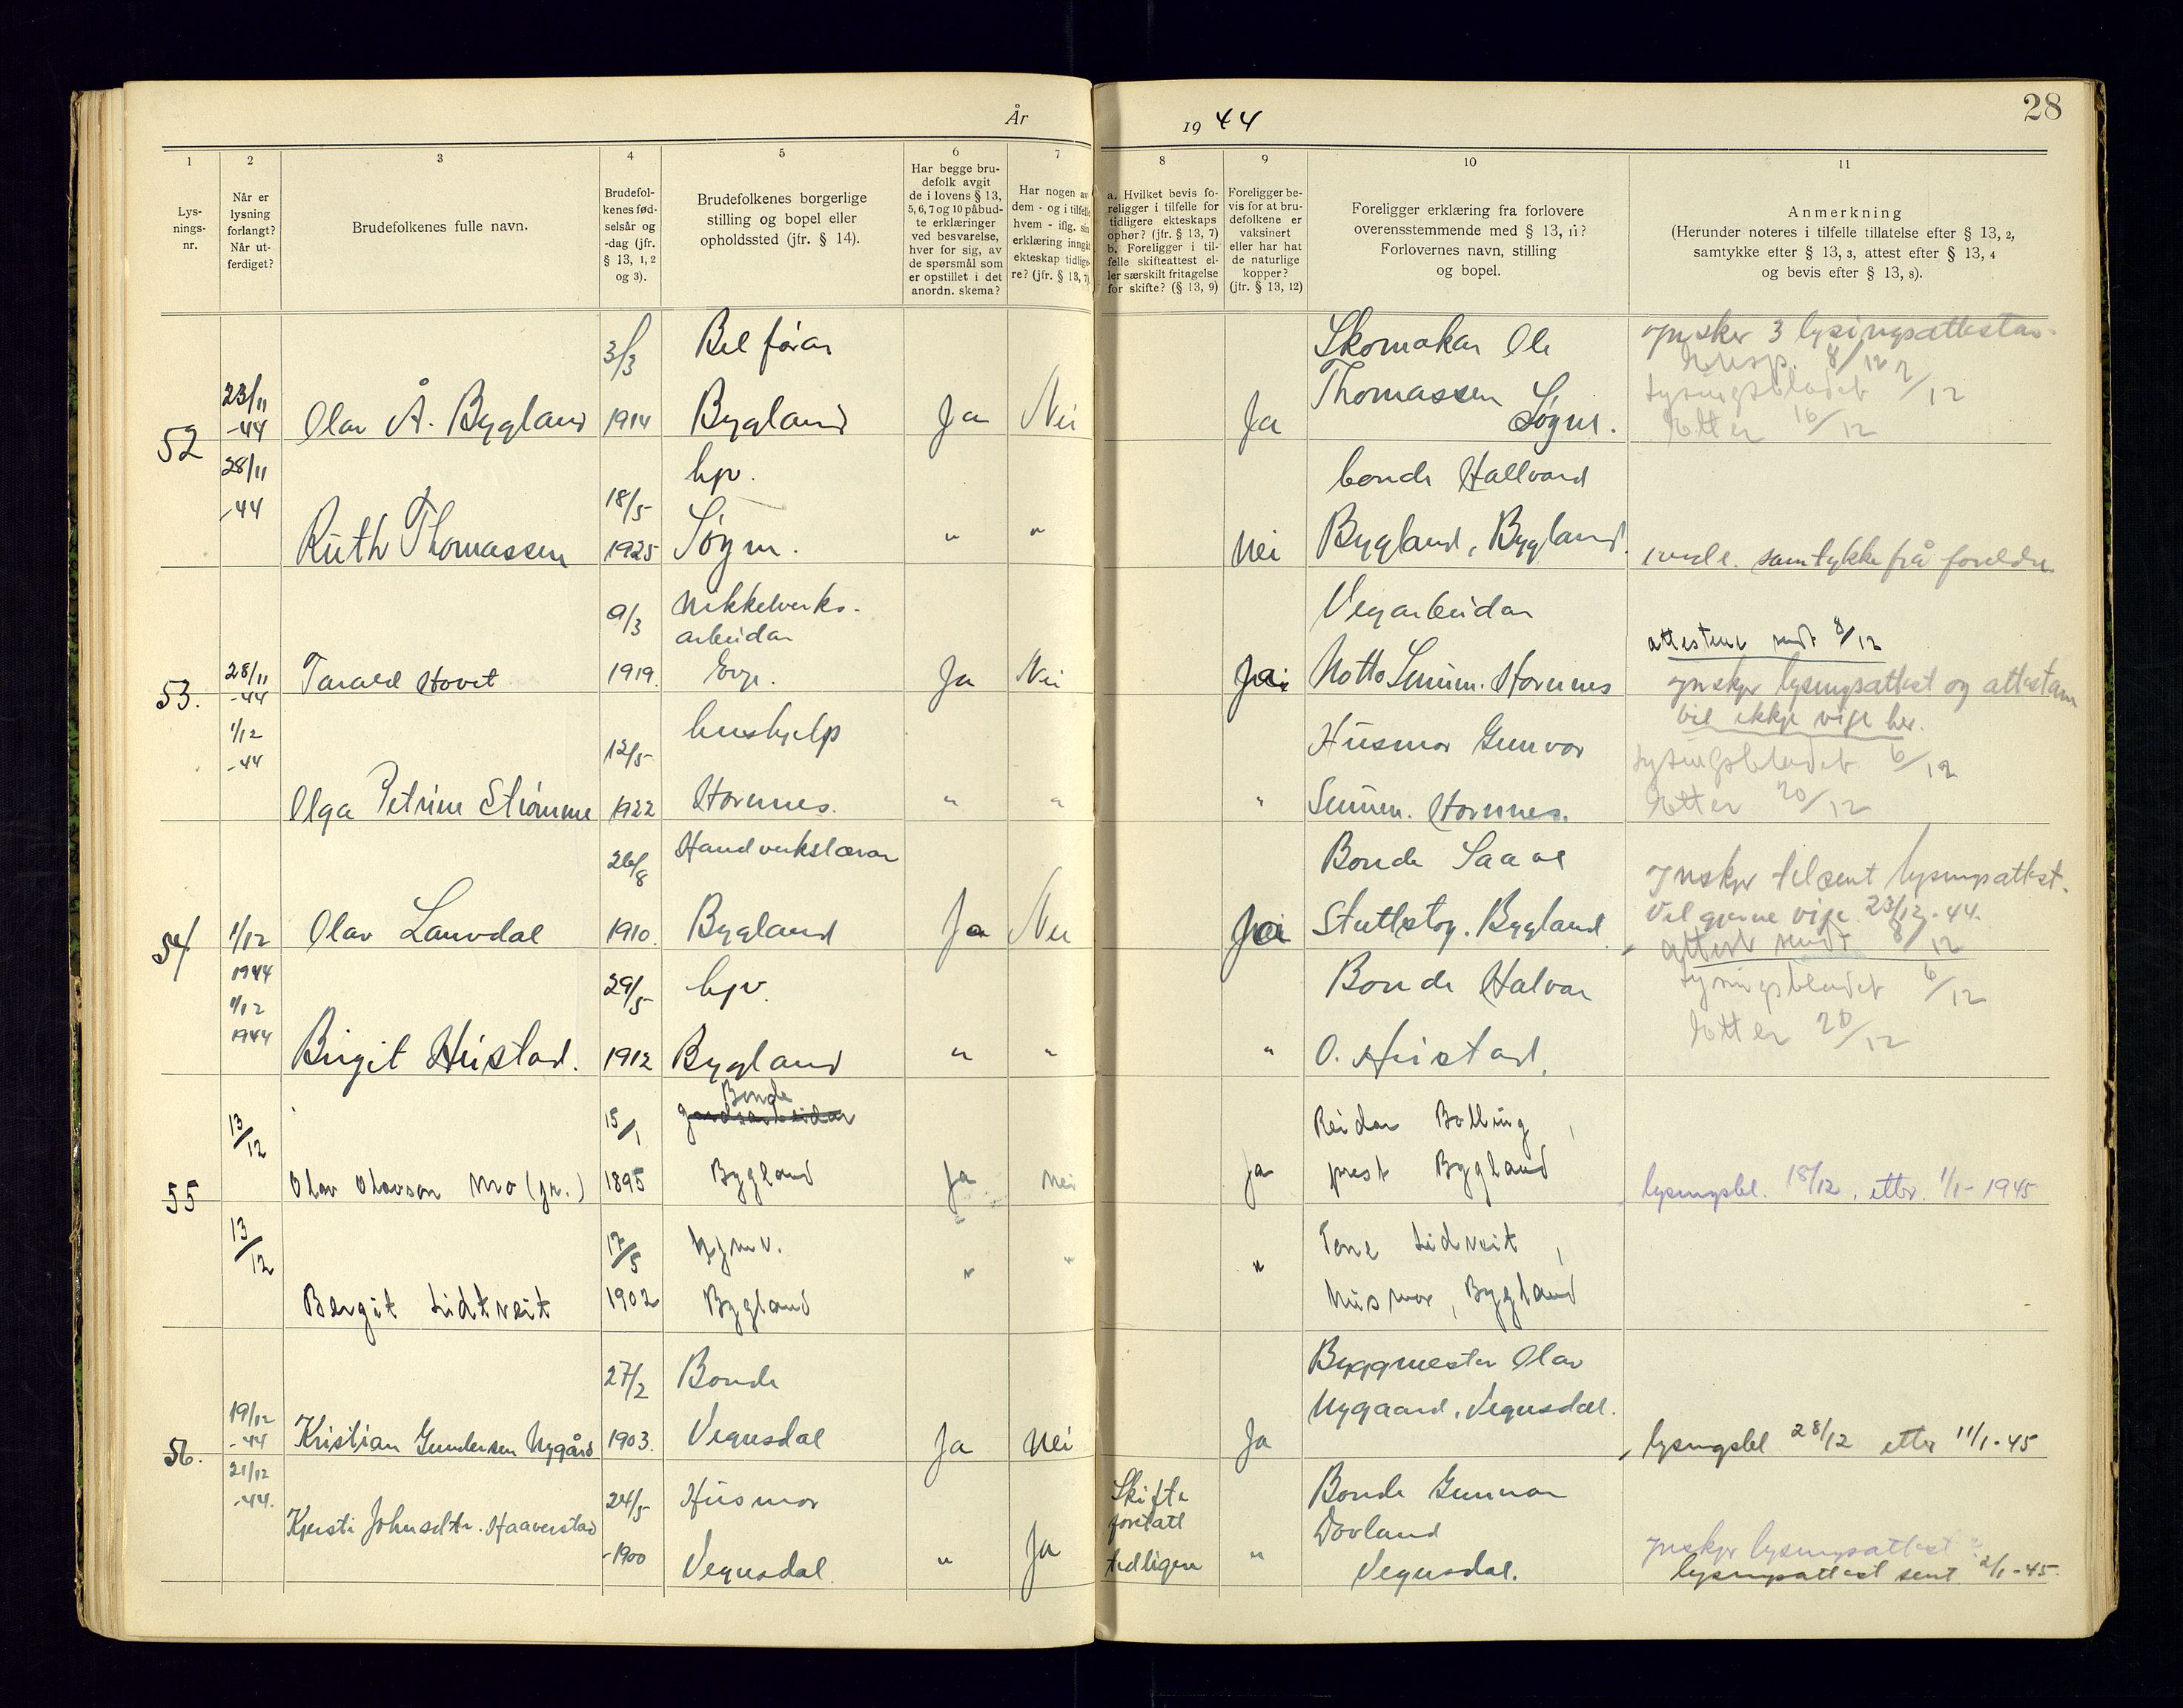 År
19 44
28
1
2
3
4
5
6
7
8
9
10
11
Lys-
nings-
nr.
Når er
lysning
forlangt?
Når ut-
ferdiget?
Brudefolkenes fulle navn.
Brudefol-
kenes fød-
selsår og
-dag (jfr.
§ 13, 1, 2
og 3).
Brudefolkenes borgerlige
stilling og bopel eller
opholdssted (jfr. § 14).
Har begge bru-
defolk avgit
de i lovens § 13,
5, 6, 7 og 10 påbud-
te erklæringer
ved besvarelse,
hver for sig, av
de spørsmål som
er opstillet i det
anordn. skema?
Har nogen av
dem - og i tilfelle
hvem - iflg. sin
erklæring inngåt
ekteskap tidlige-
re? (jfr. § 13, 7)
a. Hvilket bevis fo-
religger i tilfelle for
tidligere ekteskaps
ophør? (jfr. § 13, 7)
b. Foreligger i til-
felle skifteattest el-
ler særskilt fritagelse
for skifte? (§ 13, 9)
Foreligger be-
vis for at bru-
defolkene er
vaksinert
eller har hat
de naturlige
kopper?
(jfr. § 13, 12)
Foreligger erklæring fra forlovere
overensstemmende med § 13, 11?
Forlovernes navn, stilling
og bopel.
Anmerkning
(Herunder noteres i tilfelle tillatelse efter § 13, 2,
samtykke efter § 13, 3, attest efter § 13, 4
og bevis efter § 13, 8).
52
23/11
-44
Olav Å. Bygland
3/3
1914
Bilførar
Bygland
Ja
Nei
Ja
Skomakar Ole
Thomassen
Søgne.
ynsker 3 lysingsattestar.
8/12
Lysingsbladet 2/12
Etter 16/12
28/11
-44
Ruth Thomassen
18/5
1925
hpv.
Søgne.
"
"
Nei
bonde Hallvard
Bygland, Bygland.
samtykke frå foreldre.
53.
28/11
-44
Tarald Hovet
9/3
1919.
Nikkelverks-
arbeidar
Evje.
Ja
Nei
Ja
Vegarbeidar
Notto Senum. Hornnes
attestene sendt 8/12
ynskjer lysingsattest og attestane
vil ikkje vige her.
1/12
-44
Olga Petrine Strømme
12/5
1922
hushjelp
Hornnes.
"
"
"
Husmor Gunvor
Senum. Hornnes.
Lysingsbladet 6/12
Etter 20/12
54
1/12
1944
Olav Lauvdal
26/8
1910.
Handverkslærar
Bygland
Ja
Nei
Ja
Bonde Saave
Stuttstog. Bygland
Ynskjer tilsent lysingsattest.
Vil gjerne vige 23/12-44.
attest sendt 8/12
1/12
1944
Birgit Heistad.
29/5
1912
hpv.
Bygland
"
"
"
Bonde Halvar
O. Heistad.
Lysingsbladet 6/12
Etter 20/12
55
13/12
Olav Olavson Mo (jr.)
15/1
1895
Bonde
gardsarbeidar
Bygland
Ja
Nei
Ja
Reidar Bolling,
prest Bygland
lysingsbl. 18/12. etter. 1/1-1945
13/12
Bergit Lidtveit
17/5
1902
Bygland
"
"
"
Tone Lidtveit,
Husmor, Bygland
56.
19/12
-44
Kristian Gundersen Nygård
27/2
1903.
Bonde
Vegusdal
Ja
Nei
Ja
Byggmester Olav
Nygaard. Vegusdal.
lysingsbl 28/12 etter 11/1-45
21/12
-44.
Kjersti Johnsdtr. Haaverstad
24/5
-1900
Husmor
Vegusdal.
"
Ja
Skifte
foretatt
tidligere
"
Bonde Gunnar
Dovland
Vegusdal.
ynskjer lysingsattest
lysingsattest sent 2/1-45.